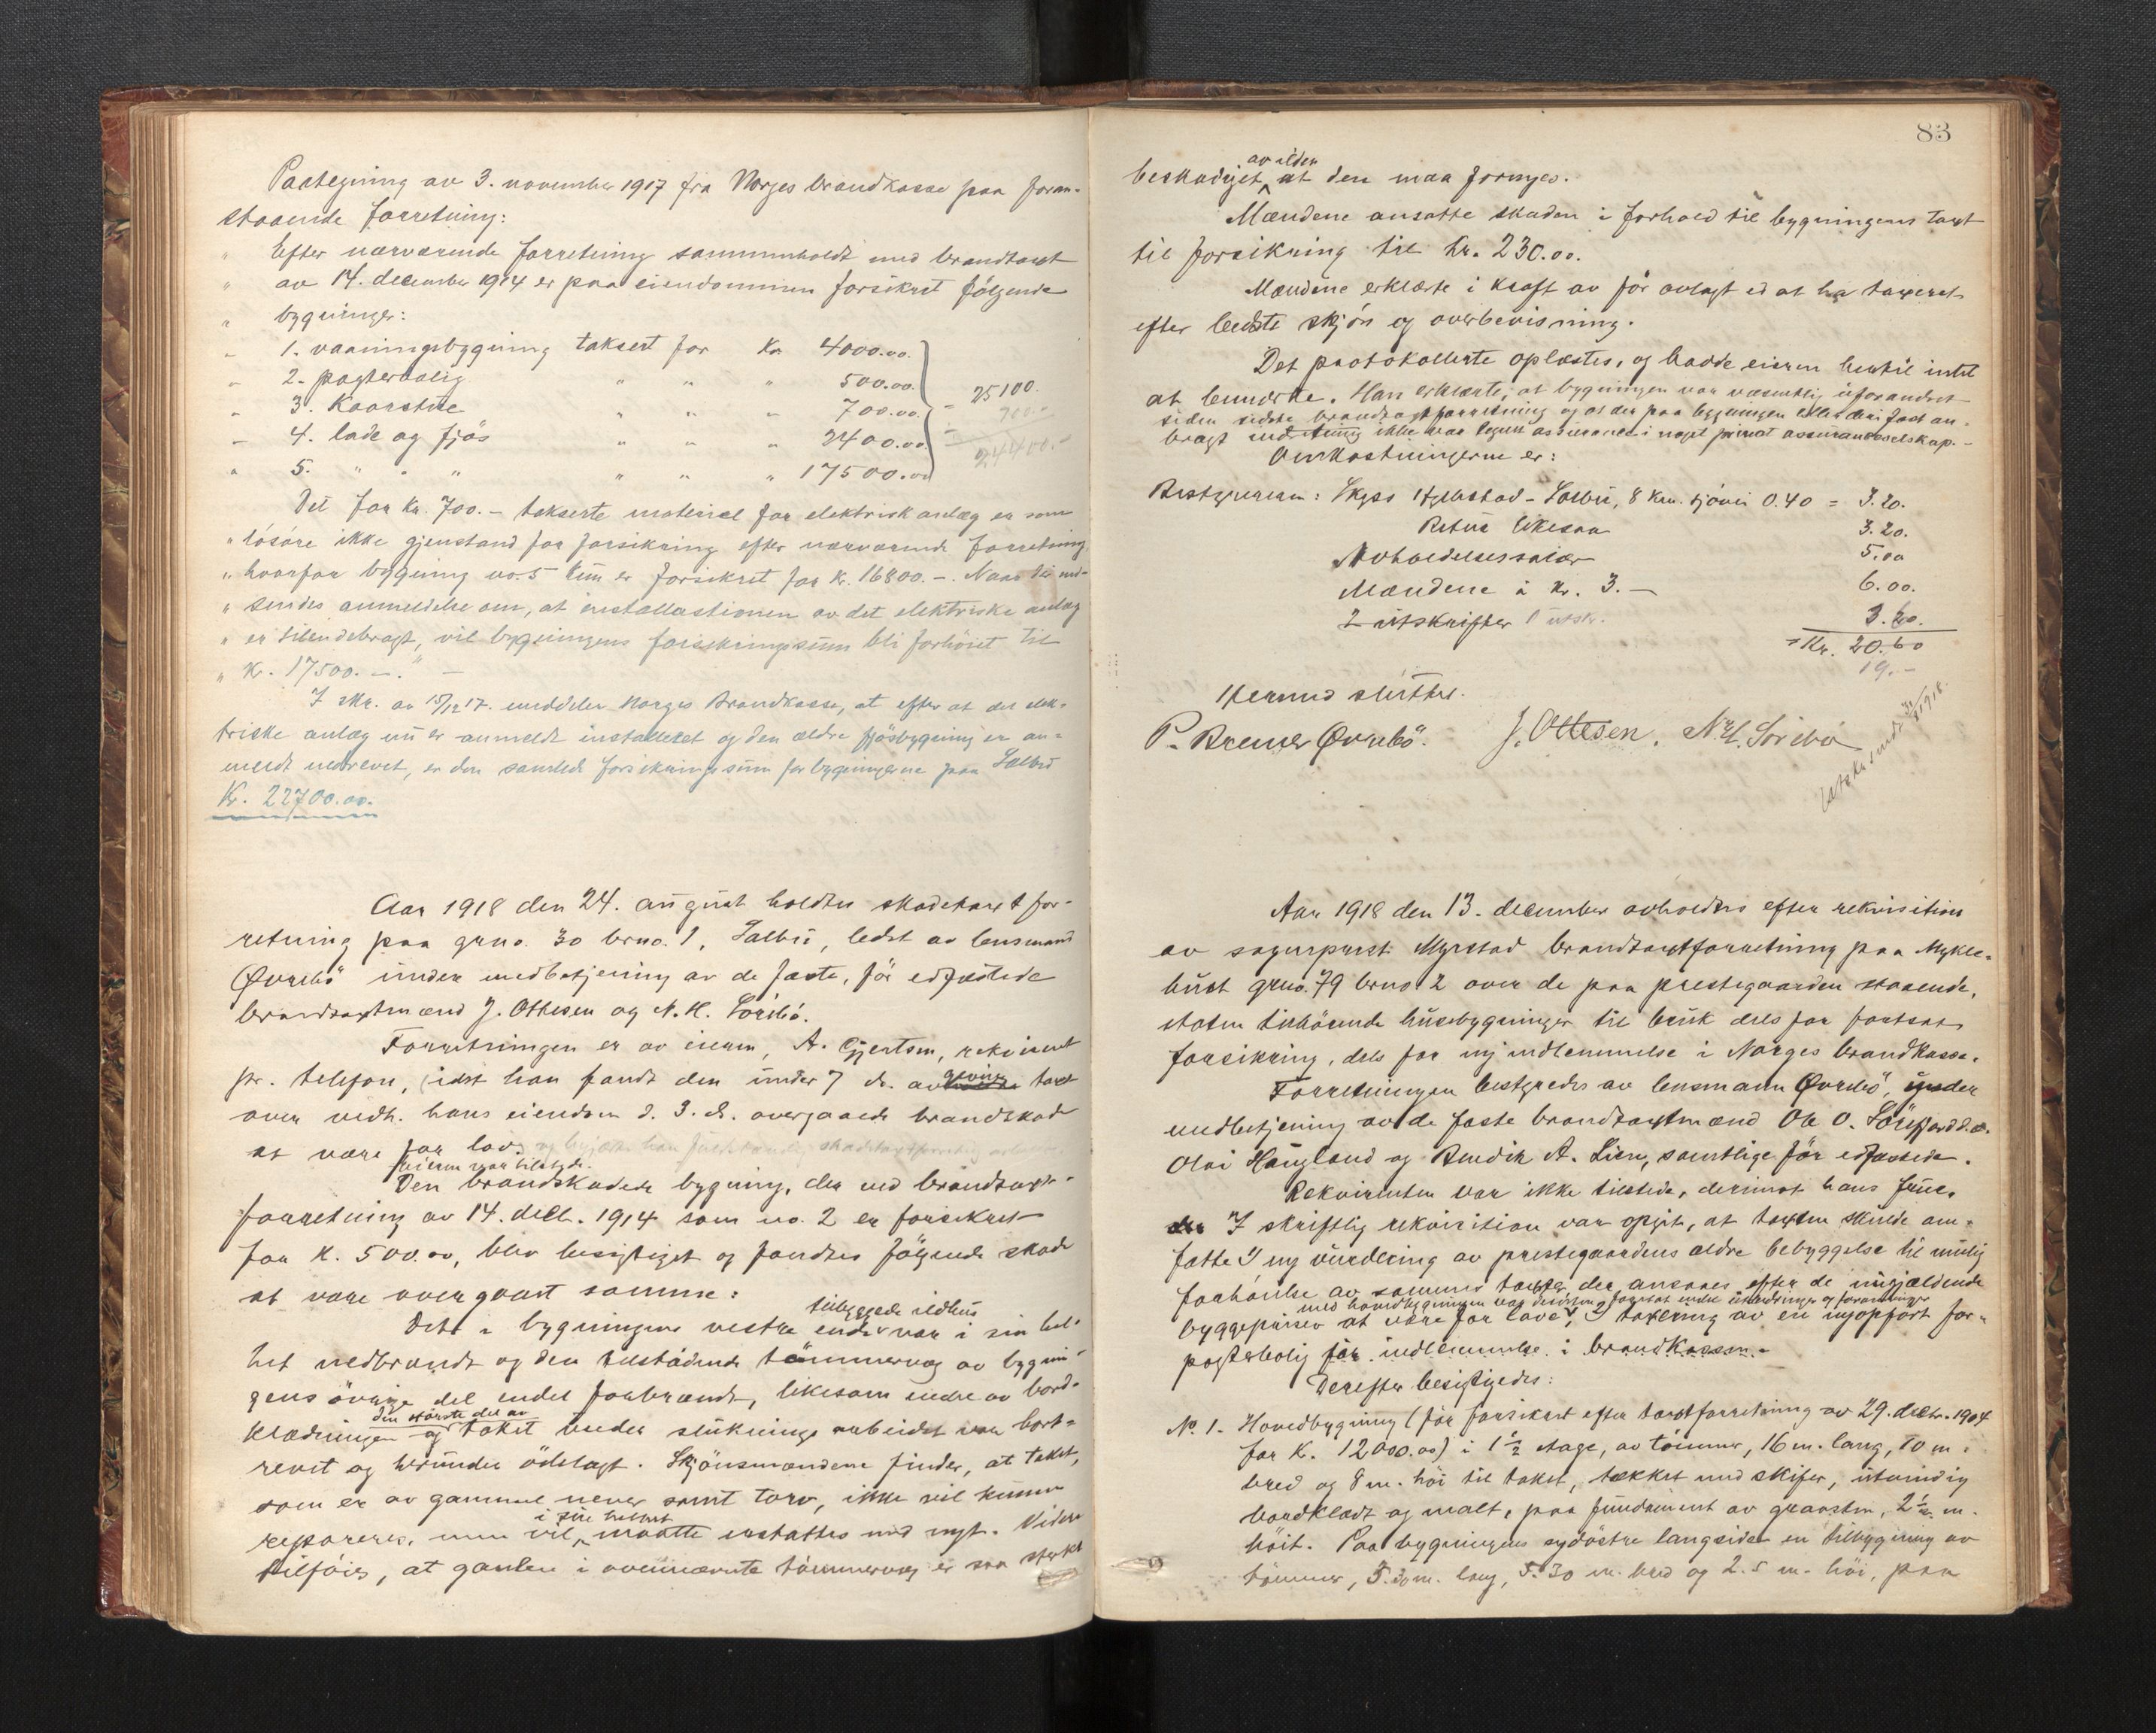 Paategning av 3. november 1917 fra Norges brandkasse paa foran-
staaende forretning:
" Efter nærværende forretning sammenholdt med brandtaxt
" av 14. december 1914 er paa eiendommen forsikret følgende
" bygninger:
" 1. vaaningsbygning taksert for Kr 4000.00.
" 2. pagterbolig " " " 500.00.
" 3. Kaarstue " " " 700.00. = 25100.
" 4. lade og fjøs " " " 2400.00. 700.-
" 5. " " " " " " 17500.00 24400.-
Det for Kr. 700.- takserte materiel for elektrisk anlæg er som
" løsøre ikke gjenstand for forsikring efter nærværende forretning
" hvorfor bygning no. 5 kun er forsikret for Kr. 16800.-. Naar der ind-
" sendes anmeldelse om, at installastionen av det elektriske anlæg
" er tilendebragt, vil bygningens forsikringssum bli forhöiet til
" Kr. 17500.-. " -
I skr. av 15/12 17. meddeler Norges Brandkasse, at efter at det elek-
triske anlæg nu er anmeldt installeret og den ældre fjösbygning er an-
meldt nedrevet, er den samlede forsikringssum for bygningerne paa Solbu
Kr. 22700.00.
Aar 1918 den 24. august holdtes skadetaxtfor-
retning paa grno. 30 brno. 1, Solbu, ledet av lensmand
Øvrebö under medbetjening av de faste, för edfæstede
brandtaxtmænd J. Ottesen og N. H. Sörebö.
Forretningen er av eieren, A. Gjertsen, rekvirert
pr. telefon, idet han fandt den under 7 ds. avgivne taxt
over vedk. hans eiendom d. 3. ds. overgaaede brandskade
at være for lav.
Eieren var tilstede.
Den brandskadede bygning, der ved brandtaxt-
forretning av 14. decb. 1914 som no. 2 er forsikret
for K. 500.00, blev besigtiget og fandtes følgende skade
at være overgaaet samme:
tilbyggede ildhus
Det i bygningens vestre ende var i sin hel-
het nedbrændt og den tilstödende tömmervæg av bygnin-
gens övrige del endel forbrændt, likesom endel av bord-
den största del av
klædningen og taket under slukningsarbeidet var bort-
revet og herunder ödelagt. Skjönsmændene finder, at taket,
som er av gammel never samt torv, ikke vil kunne
i sin helhet
repareres, men vil maatte erstattes med nyt. Videre
tilföies, at gavlen i ovennævnte tömmervæg er saa sterkt
83
av ilden
beskadiget, at den maa fornyes.
Mændene ansatte skaden i forhold til bygningens taxt
til forsikring til kr. 230.00.
Mændene erklærte i kraft av för avlagt ed at ha taxeret
efter bedste skjön og overbevisning.
Det protokollerte oplæstes, og havde eieren hertil intet
at bemerke. Han erklærte, at bygningen var væsentlig uforandret
siden sidste brandtaxtforretning og at der paa bygningen eller deri fast an-
bragt indretning ikke var tegnet assurance i noget privat assuranceselskap.-
Omkostningerne er:
Bestyreren: Skyss Hjelmstad - Solbu, 8 km. sjövei 0.40 = 3.20.
Retur likesaa 3.20.
Avholdelsessalær 5.00
Mændene à Kr. 3.- 6.00.
2 utskrifter 1 utskr. 3.20.
Kr. 20.60
19.-
Hermed sluttet.
P. Bremer Øvrebö. J. Ottesen. N. H. Sörebö
Utskr. sendt 31/8 1918.
Aar 1918 den 13. december avholdtes efter rekvisition
av sogneprest Myrstad brandtaxtforretning paa Mykle-
bust grno. 79 brno 2 over de paa prestegaarden staaende,
staten tilhörende husebygninger til bruk dels for fortsat
forsikring, dels for ny indlemmelse i Norges brandkasse.
Forretningen bestyredes av lensmann Øvrebö, under
medbetjening av de faste brandtaxtmænd Ole O. Sörefjord d.æ.
Olai Haugland og Bendik A. Lien, samtlige för edfæstede.
Rekvirenten var ikke tilstede, derimot hans frue.
I skriftlig rekvisition var opgit, at taxten skulde om-
fatte 1) ny vurdering av prestegaardens ældre bebyggelse til mulig
forhöielse av sammes taxter, der ansees efter de nugjældende
med hovedbygningen var desuten foretat endel utbedringer og forandringer
byggepriser at være for lave, 2) taxering av en nyopfört for-
pagterbolig för indlemmelse i brandkassen.-
Derefter besigtigedes:
No. 1. Hovedbygning (för forsikret efter taxtforretning av 29. decbr. 1904
for K. 12000.00) i 1 1/2 etage, av tömmer, 16 m. lang, 10 m.
bred og 8 m. höi til taket, tækket med skifer, utvendig
bordklædt og malt, paa fundament av graasten, 2 1/2 m.
höit. Paa bygningens sydöstre langside en tilbygning av
tömmer, 5.30 m. lang, 5.30 m. bred og 2.5 m. höi, paa